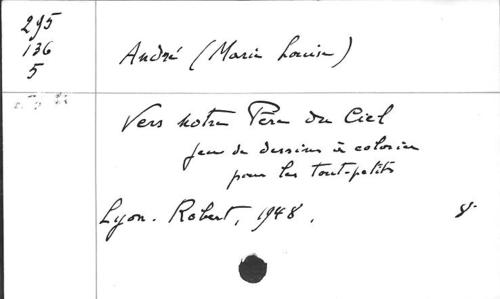 295
136
5
André (Marie Louise)
Vers notre Père du Ciel
jeu de dessins à colorier
pour les tout-petits
Lyon. Robert, 1948. 8.